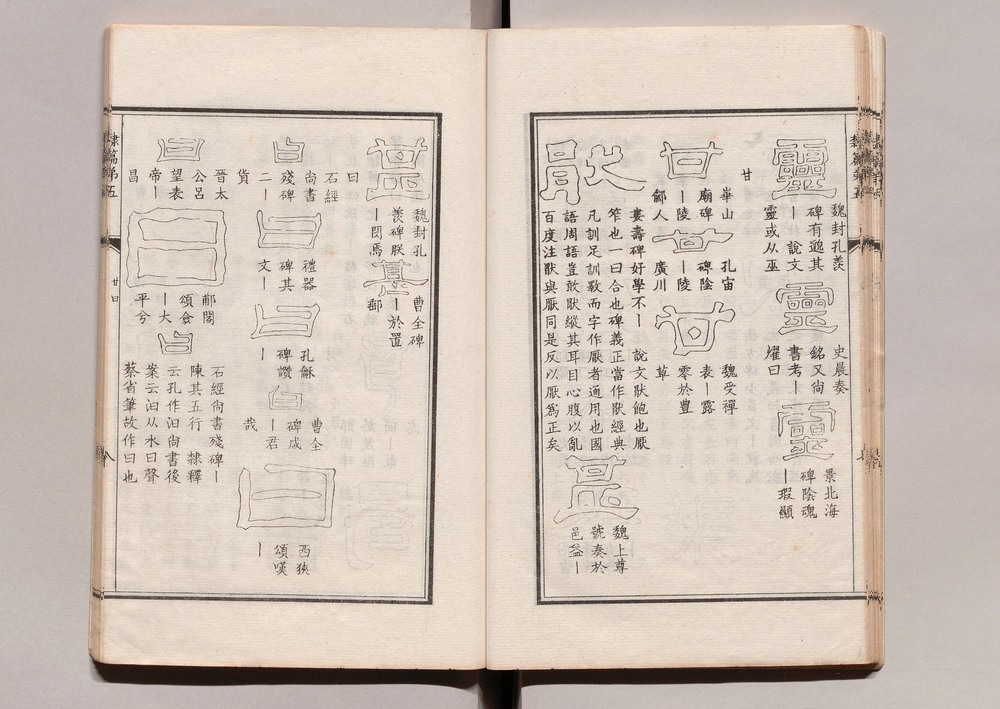 靈
魏封孔羨
碑有邈其
丨說文
靈或从巫
靈
史晨奏
銘又尚
書考丨
燿曰
靈
景北海
碑陰魂
丨瑕顯
甘
甘
華山
廟碑
丨陵
鄃人
甘
孔宙
碑陰
丨陵
廣川
甘
魏受禪
表丨露
零於豐
草
猒
婁壽碑好學不丨 說文猒飽也厭
笮也一曰合也碑義正當作猒經典
凡訓足訓斁而字作厭者通用也國
語周語豈敢猒縱其耳目心腹以亂
百度注猒與厭同是反以厭爲正矣
甚
魏上尊
號奏於
邑益丨
甚
魏封孔
羨碑朕
丨閔焉
甚
曹全碑
丨於置
郵
曰
曰
石經
尚書
殘碑
二丨
貨
曰
禮器
碑其
文丨
曰
孔龢
碑讚
丨
曰
曹全
碑咸
丨君
哉
曰
西狹
頌嘆
丨
曰
晉太
公呂
望表
帝丨
昌
曰
郙閣
頌僉
丨大
平兮
曰
石經尚書殘碑丨
陳其五行 隸釋
云孔作汩尚書後
案云汩从水曰聲
蔡省筆故作曰也
隸篇第五
甘曰
八